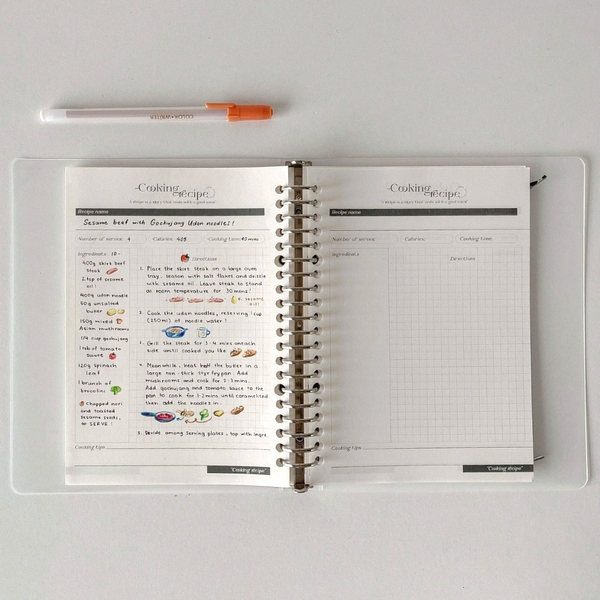 COLOR·WRITER
Cooking recipe
Recipe name
Sesame beef with Gochujang Udon noodles!
Number of serves: 4 Calories: 408 Cooking time: 40 mins
Ingredients: 10-
400g skirt beef
steak
2 tbsp of sesame
oil!
400g udon noodle
50g unsalted
butter
150g mixed
Asian mushrooms
1/4 cup gochujang
1 tab of tomato
sauce
120g spinach
leaf
1 brunch of
broccolini
Chopped nori
and toasted
sesame seeds,
to SERVE!
Directions
1. Place the skirt steak on a large oven
tray, season with salt flakes and drizzle
with sesame oil. Leave steak to stand
at room temperature for 30 mins!
& sesame
oil!
2. Cook the udon noodles, reserving 1 cup
(250ml) of noodle water!
3. Grill the steak for 3-4 mins on each
side until cooked you like
4. Meanwhile, heat half the butter in a
large non-stick fry pan. Add
mushrooms and cook for 2-3 mins.
Add gochujang and tomato sauce to the
pan to cook for 1-2 mins until caramelised
then add the noodles in.
5. Divide among serving plates, top with
Cooking tips
"Cooking recipe"
Cooking recipe
Recipe name
Number of serves: Calories: Cooking time:
Ingredients
Directions
Cooking tips
"Cooking recipe"